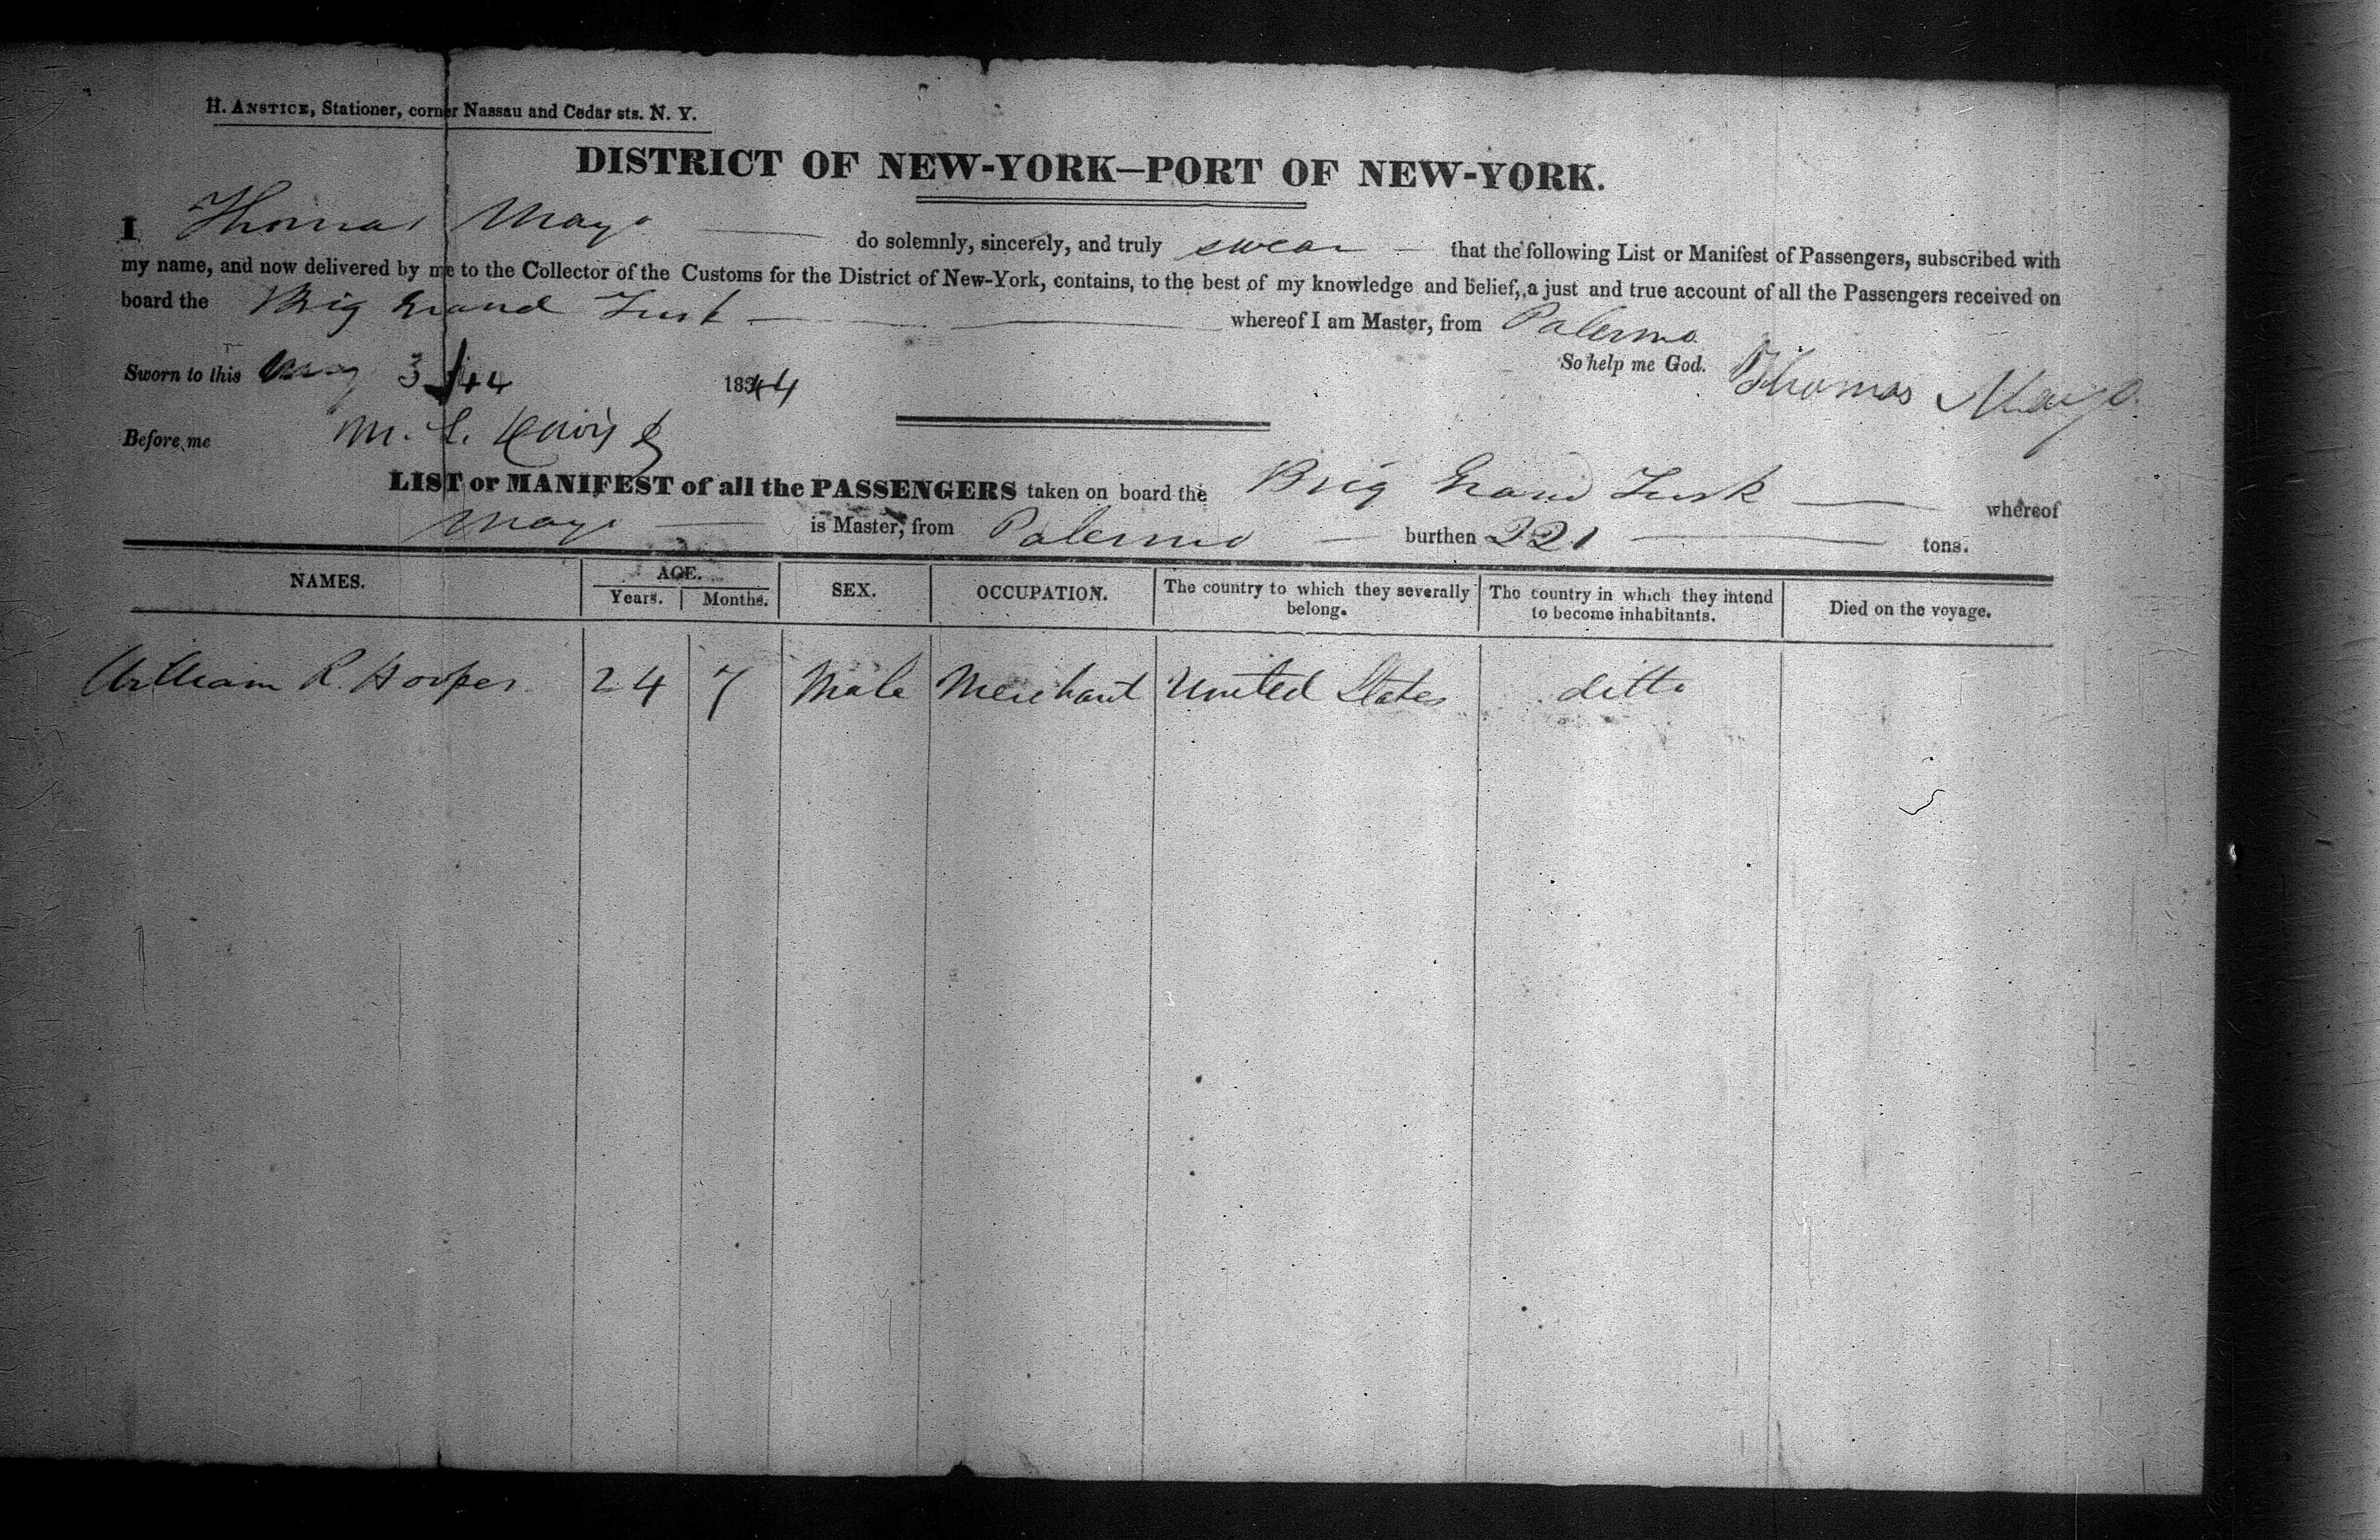 H. ANSTICE, Stationer, corner Nassau and Cedar sts. N. Y.
DISTRICT OF NEW-YORK—PORT OF NEW-YORK.
I Thomas Mayo do solemnly, sincerely, and truly swear that the following List or Manifest of Passengers, subscribed with
my name, and now delivered by me to the Collector of the Customs for the District of New-York, contains, to the best of my knowledge and belief, a just and true account of all the Passengers received on
board the Brig Grand Turk whereof I am Master, from Palermo
So help me God. Thomas Mayo
Sworn to this 3 /44 1844
Before me
LIST or MANIFEST of all the PASSENGERS taken on board the Brig Grand Turk whereof
Mayo is Master, from Palermo burthen 221 tons.
NAMES. AGE. Years. Months. SEX. OCCUPATION. The country to which they severally belong. The country in which they intend to become inhabitants. Died on the voyage.
William R. Hooper 24 7 Male Merchant United States ditto